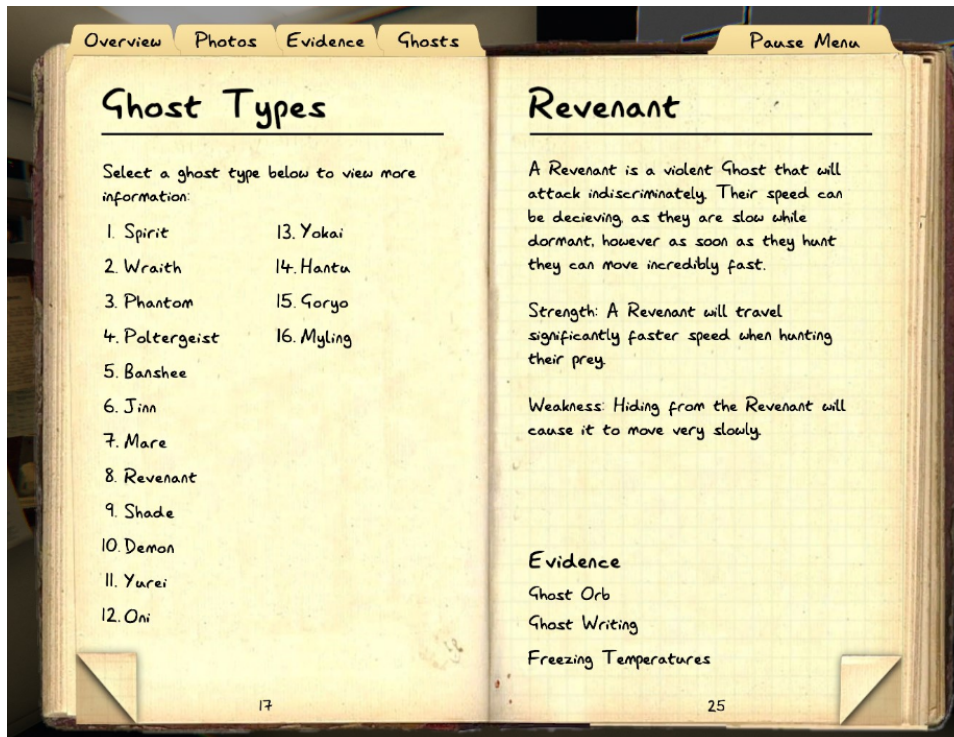 Overview Photos Evidence Ghosts Pause Menu
Ghost Types
Select a ghost type below to view more
information:
1. Spirit
2. Wraith
3. Phantom
4. Poltergeist
5. Banshee
6. Jinn
7. Mare
8. Revenant
9. Shade
10. Demon
11. Yurei
12. Oni
13. Yokai
14. Hantu
15. Goryo
16. Myling
17
Revenant
A Revenant is a violent Ghost that will
attack indiscriminately. Their speed can
be decieving, as they are slow while
dormant, however as soon as they hunt
they can move incredibly fast.
Strength: A Revenant will travel
significantly faster speed when hunting
their prey.
Weakness: Hiding from the Revenant will
cause it to move very slowly.
Evidence
Ghost Orb
Ghost Writing
Freezing Temperatures
25